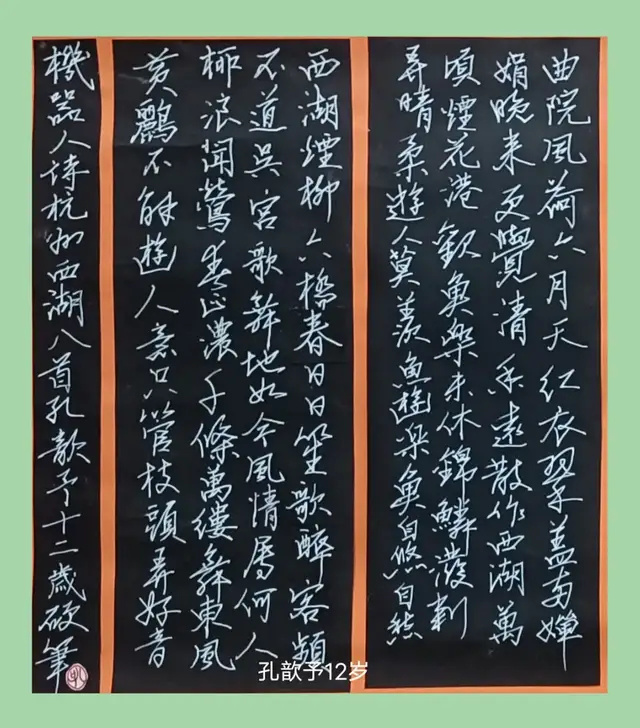 曲院風荷六月天紅衣翠蓋鬥嬋
娟晚來更覺清香遠散作西湖萬
頃煙花港觀魚樂未休錦鱗潑剌
弄晴柔遊人莫羨魚遊樂魚自悠自
西湖煙柳六橋春日日笙歌醉客頻
不道吳宮歌舞地如今風情屬何人
柳浪聞鶯春正濃千條萬縷舞東風
黃鸝不解遊人意只管枝頭弄好音
機器人詩杭州西湖八首孔歆予十二歲硬筆
孔歆予12岁